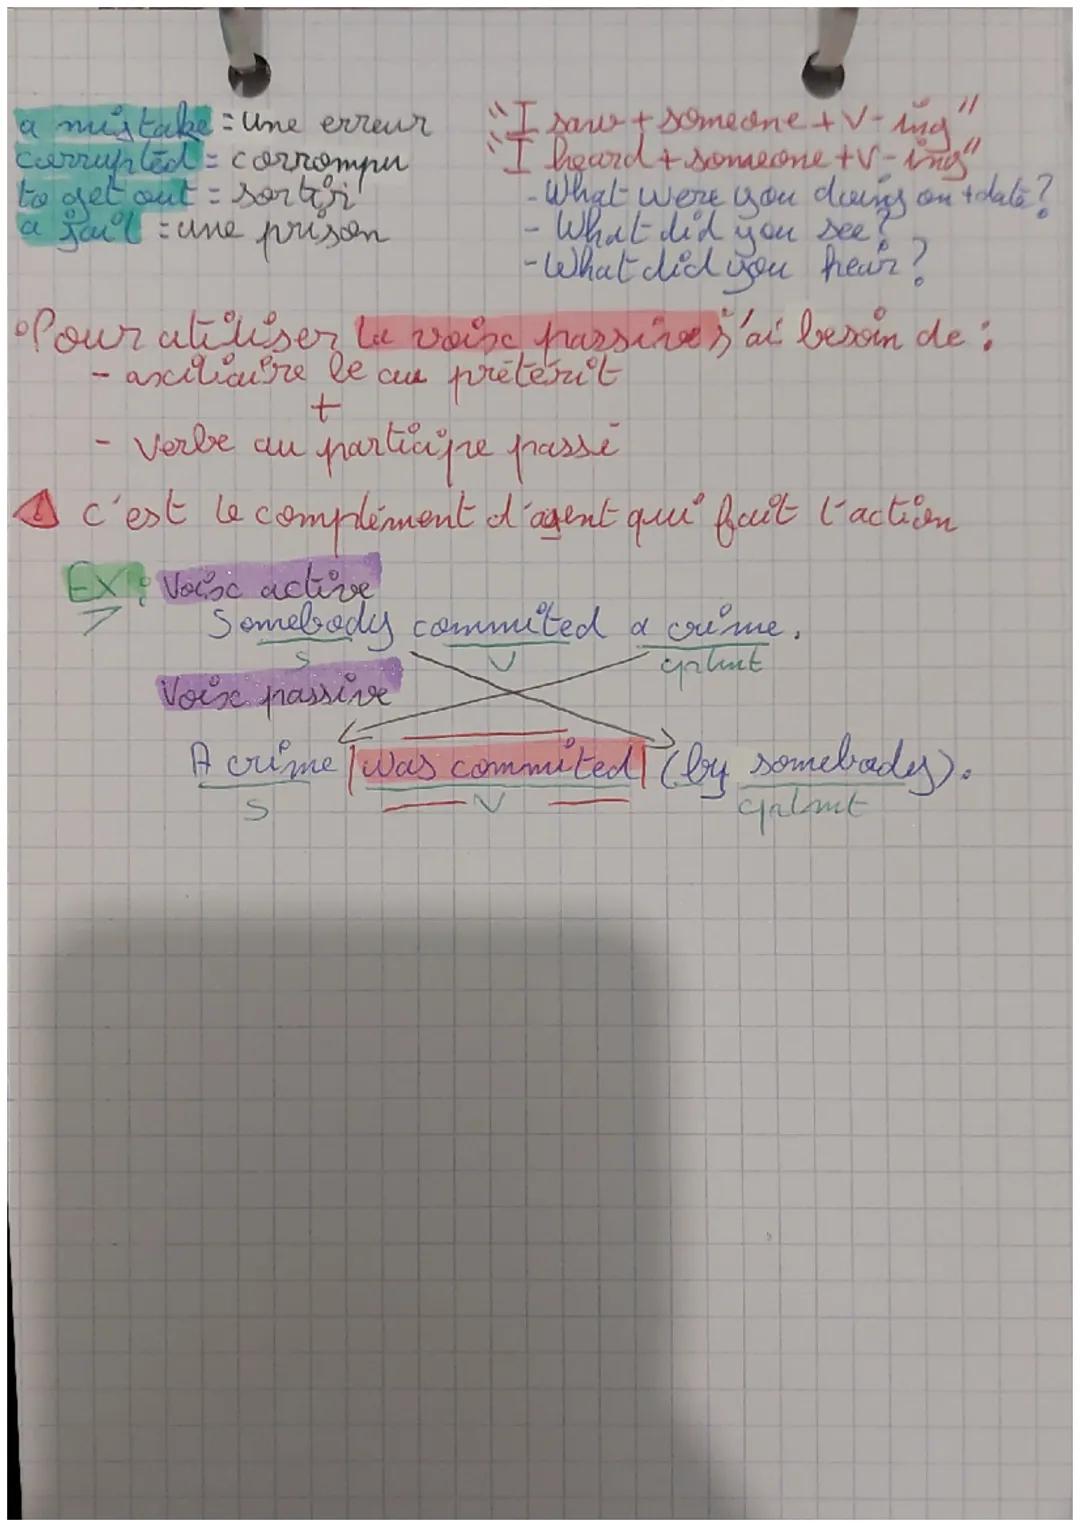 a mistake = une erreur
corrupted = corrompu
to get out = sortir
a jail = une prison
"I saw + someone + V-ing"
"I heard + someone + V-ing"
- What were you doing on + date?
- What did you see?
- What did you hear?
• Pour utiliser la voix passive j'ai besoin de :
- auxiliaire be au prétérit
+
- verbe au participe passé
! c'est le complément d'agent qui fait l'action
EX : Voix active
Somebody commited a crime.
S V cplmt
Voix passive
A crime was commited (by somebody).
S V cplmt